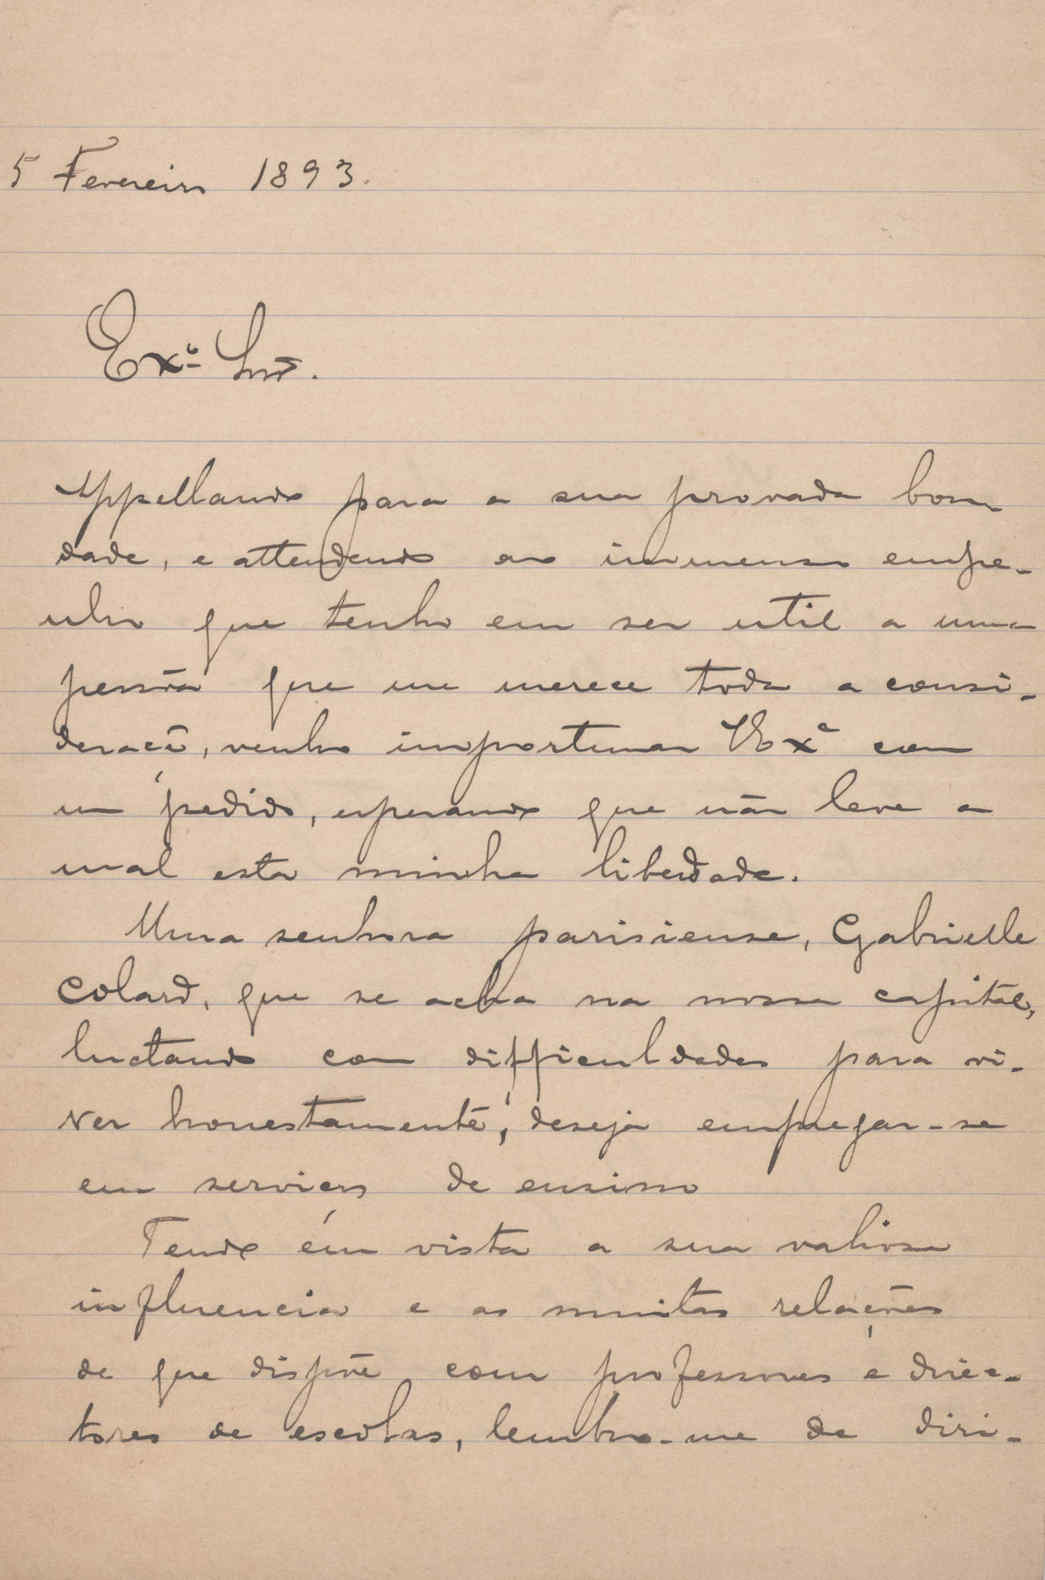 5 Fevereiro 1893.
Exº Snr.
Appellando para a sua provada bon
dade, e attendendo ao immenso empe-
nho que tenho em ser util a uma
pessôa que me merece toda a consi-
deracã, venho importunar V Exª com
um pedido, esperando que não leve a
mal esta minha liberdade.
Uma senhora parisiense, Gabrielle
Colard, que se acha na nossa capital,
luctando com difficuldades para vi-
ver honestamente, deseja empregar-se
em serviços de ensino
Tendo em vista a sua valiosa
influencia e as muitas relações
de que dispõe com professores e direc-
tores de escolas, lembro-me de diri-